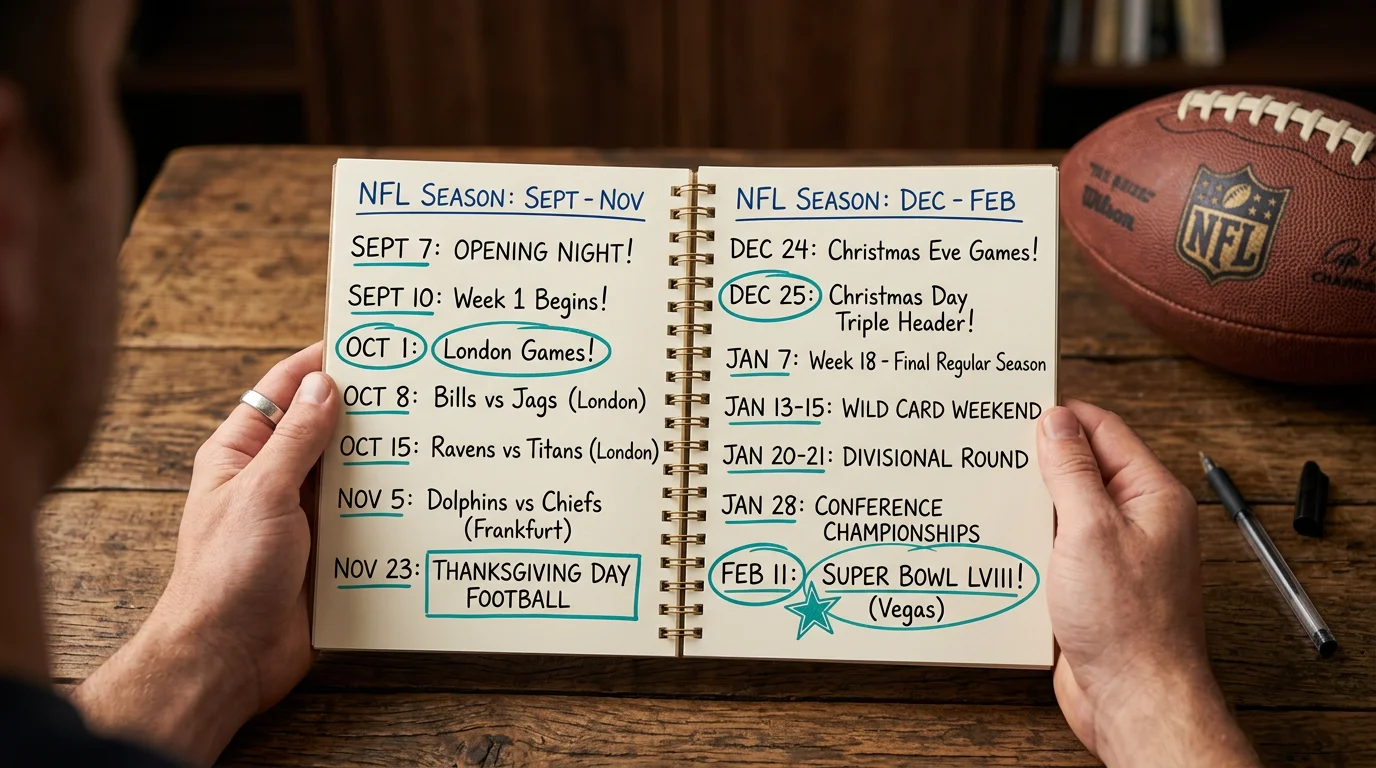 NFL SEASON: SEPT - NOV
SEPT 7: OPENING NIGHT!
SEPT 10: Week 1 Begins!
OCT 1: London Games!
OCT 8: Bills vs Jags (London)
OCT 15: Ravens vs Titans (London)
NOV 5: Dolphins vs Chiefs
(Frankfurt)
NOV 23: THANKSGIVING DAY
FOOTBALL
NFL SEASON: DEC - FEB
DEC 24: Christmas Eve Games!
DEC 25: Christmas Day
Triple Header!
JAN 7: Week 18 - Final Regular Season
JAN 13-15: WILD CARD WEEKEND
JAN 20-21: DIVISIONAL ROUND
JAN 28: CONFERENCE
CHAMPIONSHIPS
FEB 11: SUPER BOWL LVIII!
(Vegas)
Wilson
NFL